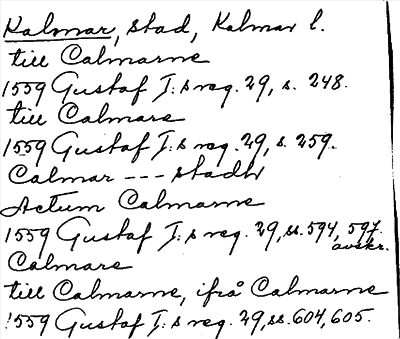 Kalmar, stad, Kalmar l.
till Calmarne
1559 Gustaf I:s reg. 29, s. 248.
till Calmare
1559 Gustaf I:s reg. 29, s. 259.
Calmar --- stadh
Actum Calmarne
1559 Gustaf I:s reg. 29, ss. 594, 597.
avskr.
Calmare
till Calmarne, ifrå Calmarne
1559 Gustaf I:s reg. 29, ss. 604, 605.